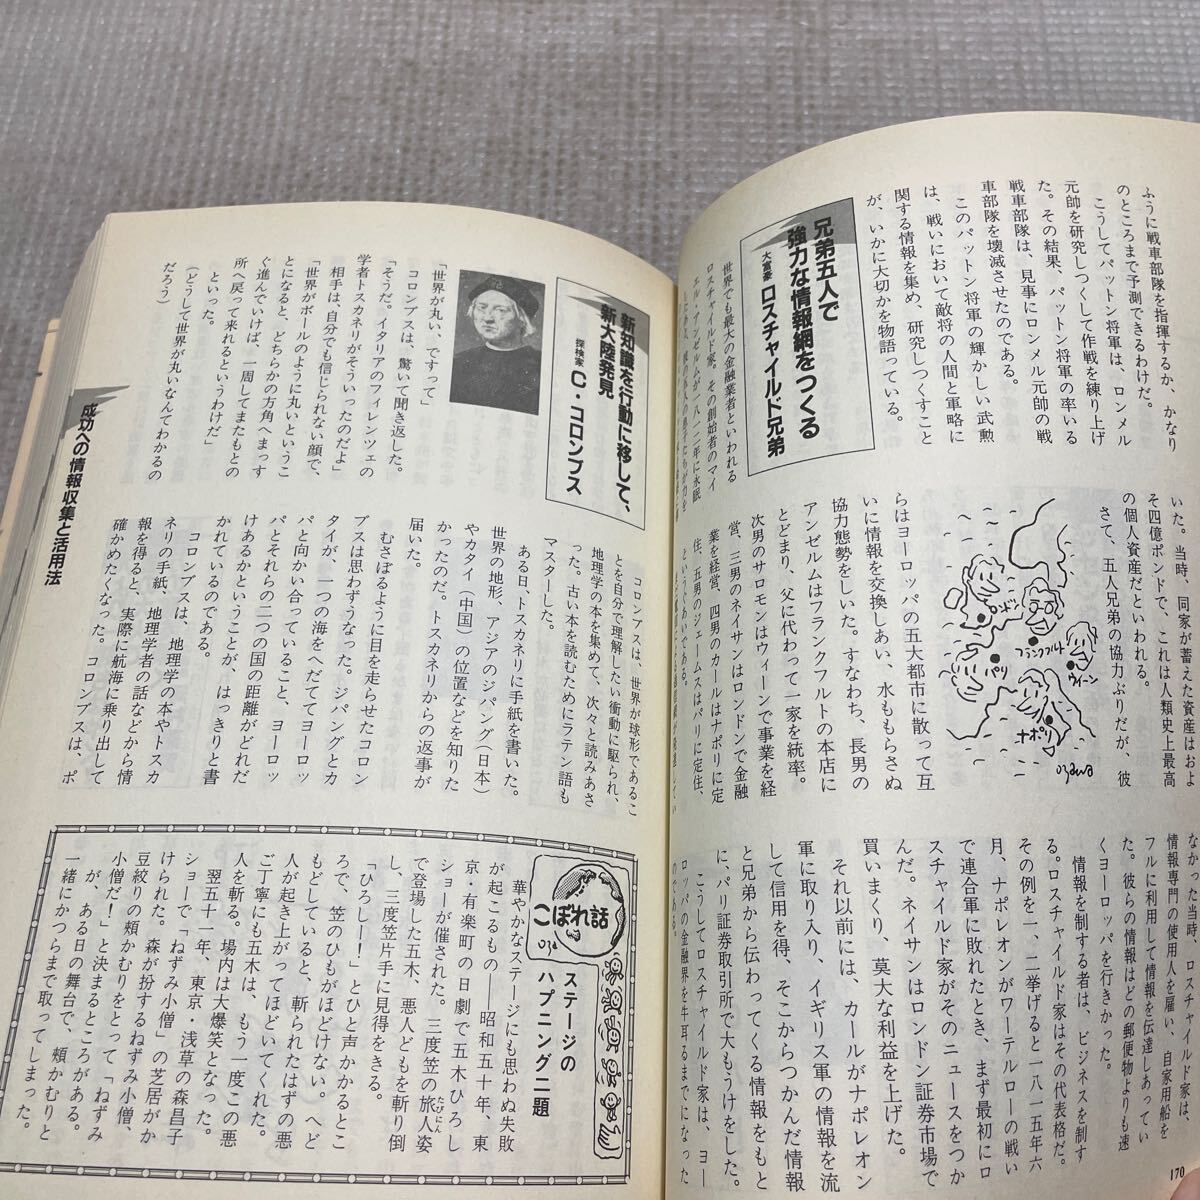 ふうに戦車部隊を指揮するか、かなり
のところまで予測できるわけだ。
こうしてパットン将軍は、ロンメル
元師を研究しつくして作戦を練り上げ
た。その結果、パットン将軍の率いる
戦車部隊は、見事にロンメル元師の戦
車部隊を壊滅させたのである。
このパットン将軍の輝かしい武勲
は、戦いにおいて敵将の人間と軍略に
関する情報を集め、研究しつくすこと
が、いかに大切かを物語っている。
兄弟五人で
強力な情報網をつくる
大富豪 ロスチャイルド兄弟
世界でも最大の金融業者といわれる
ロスチャイルド家。その創始者のマイ
エル・アンゼルムが一八一二年に永眠
いた。当時、同家が蓄えた資産はおよ
そ四億ポンドで、これは人類史上最高
の個人資産だといわれる。
さて、五人兄弟の協力ぶりだが、彼
ロンドン
フランクフルト
パリ
ウィーン
ナポリ
ozawa
らはヨーロッパの五大都市に散って互
いに情報を交換しあい、水ももらさぬ
協力態勢をしいた。すなわち、長男の
アンゼルムはフランクフルトの本店に
とどまり、父に代わって一家を統率。
次男のサロモンはウィーンで事業を経
営、三男のネイサンはロンドンで金融
業を経営、四男のカールはナポリに定
住、五男のジェームスはパリに定住、
というぐあいである。
なかった当時、ロスチャイルド家は、
情報専門の使用人を雇い、自家用船を
フルに利用して情報を伝達しあってい
た。彼らの情報はどの郵便物よりも速
くヨーロッパを行きかった。
情報を制する者は、ビジネスを制す
る。ロスチャイルド家はその代表格だ。
その例を一、二挙げると一八一五年六
月、ナポレオンがワーテルローの戦い
で連合軍に敗れたとき、まず最初にロ
スチャイルド家がそのニュースをつか
んだ。ネイサンはロンドン証券市場で
買いまくり、莫大な利益を上げた。
それ以前には、カールがナポレオン
軍に取り入り、イギリス軍の情報を流
して信用を得、そこからつかんだ情報
と兄弟から伝わってくる情報をもと
に、パリ証券取引所で大もうけをした。
こうしてロスチャイルド家は、ヨー
ロッパの金融界を牛耳るまでになった
のである。
170
新知識を行動に移して、
新大陸発見
探検家 C・コロンブス
「世界が丸い、ですって」
コロンブスは、驚いて聞き返した。
「そうだ。イタリアのフィレンツェの
学者トスカネリがそういったのだよ」
相手は、自分でも信じられない顔で、
「世界がボールのように丸いというこ
とになると、どちらかの方角へまっす
ぐ進んでいけば、一周してまたもとの
所へ戻って来れるというわけだ」
といった。
(どうして世界が丸いなんてわかるの
だろう)
コロンブスは、世界が球形であるこ
とを自分で理解したい衝動に駆られ、
地理学の本を集めて、次々と読みあさ
った。古い本を読むためにラテン語も
マスターした。
ある日、トスカネリに手紙を書いた。
世界の地形、アジアのジパング(日本)
やカタイ(中国)の位置などを知りた
かったのだ。トスカネリからの返事が
届いた。
むさぼるように目を走らせたコロン
ブスは思わずうなった。ジパングとカ
タイが、一つの海をへだててヨーロッ
パと向かい合っていること、ヨーロッ
パとそれらの二つの国の距離がどれだ
けあるかということが、はっきりと書
かれているのである。
コロンブスは、地理学の本やトスカ
ネリの手紙、地理学者の話などから情
報を得ると、実際に航海に乗り出して
確かめたくなった。コロンブスは、ポ
こぼれ話
ステージの
ハプニング二題
華やかなステージにも思わぬ失敗
が起こるもの――昭和五十年、東
京・有楽町の日劇で五木ひろし
ショーが催された。三度笠の旅人姿
たびにん
で登場した五木、悪人どもを斬り倒
し、三度笠片手に見得をきる。
「ひろしー!」とひと声かかるとこ
ろで、笠のひもがほどけない。へど
もどしていると、斬られたはずの悪
人が起き上がってほどいてくれた。
ご丁寧にも五木は、もう一度この悪
人を斬る。場内は大爆笑となった。
翌五十一年、東京・浅草の森昌子
ショーで、「ねずみ小僧」の芝居がか
けられた。森が扮するねずみ小僧、
豆絞りの頬かむりをとって「ねずみ
小僧だ!」と決まるところがある。
が、ある日の舞台で、頬かむりと
一緒にかつらまで取ってしまった。
成功への情報収集と活用法